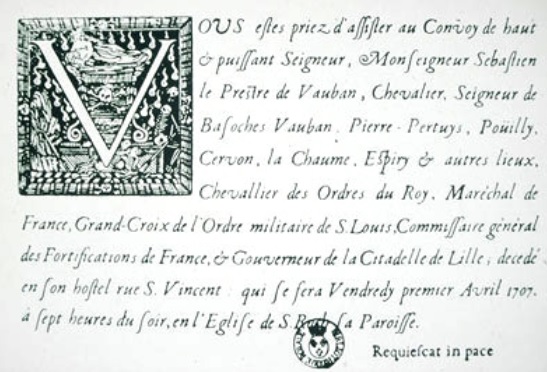 VOUS estes priez d'assister au Convoy de haut
& puissant Seigneur, Monseigneur Sebastien
le Prestre de Vauban, Chevalier, Seigneur de
Basoches Vauban, Pierre-Pertuys, Poüilly,
Cervon, la Chaume, Espiry & autres lieux,
Chevallier des Ordres du Roy, Maréchal de
France, Grand-Croix de l'Ordre militaire de S. Louis, Commissaire général
des Fortifications de France, & Gouverneur de la Citadelle de Lille, decedé
en son hostel rue S. Vincent : qui se fera Vendredy premier Avril 1707.
à sept heures du soir, en l'Eglise de S. Roch sa Paroisse.
Requiescat in pace